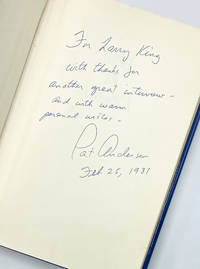 For Larry King
with thanks for
another great interview –
and with warm
personal wishes –
Pat Anderson
Feb 25, 1981